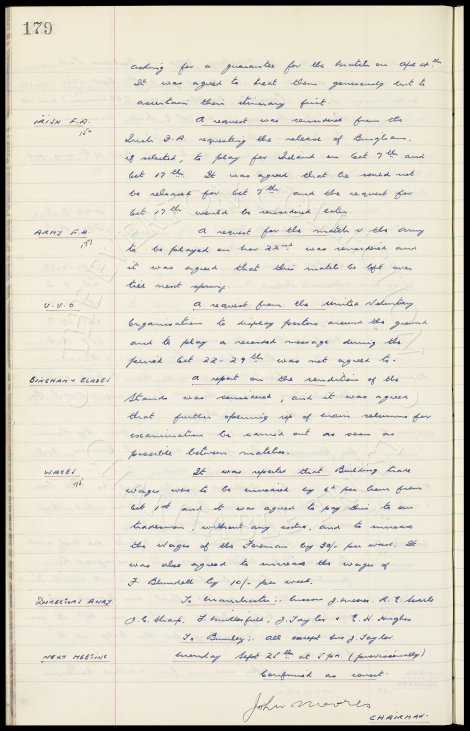 179
asking for a guarantee for the match on
It was agreed to treat them generously but to
ascertain their itinerary first.
IRISH F.A. A request was considered from the
Irish F.A. requesting the release of Bingham,
if selected, to play for Ireland on Oct 7th and
Oct 17th. It was agreed that he could not
be released for Oct 7th and the request for
Oct 17th would be considered later.
ARMY F.A. A request for the match v the Army
to be played on Nov. 22nd was considered and
it was agreed that this match be left over
till next spring.
U.V.O A request from the United Voluntary
Organisation to display posters around the ground
and to play a recorded message during the
period Oct 22-29th was not agreed to.
BINGHAM & BLADES A report on the condition of the
Stands was considered, and it was agreed
that further opening up of for
examination be carried out as soon as
possible between matches.
WAGES It was reported that Building trade
wages was to be increased by per hour from
Oct 1st and it was agreed to pay this to our
tradesmen, without any extra, and to increase
the wages of the Foreman by 30/- per week. It
was also agreed to increase the wages of
F. Blundell by 10/- per week.
DIRECTORS AWAY. To Manchester:- Messrs J. Moores. R. E. Searle
O. C. Sharp, F. Micklesfield, J. Taylor & E. H. Hughes
To Burnley:- All except Mr J. Taylor
NEXT MEETING Monday Sept 25th at 5 p.m. (provisionally)
Confirmed as correct.
John Moores
CHAIRMAN.